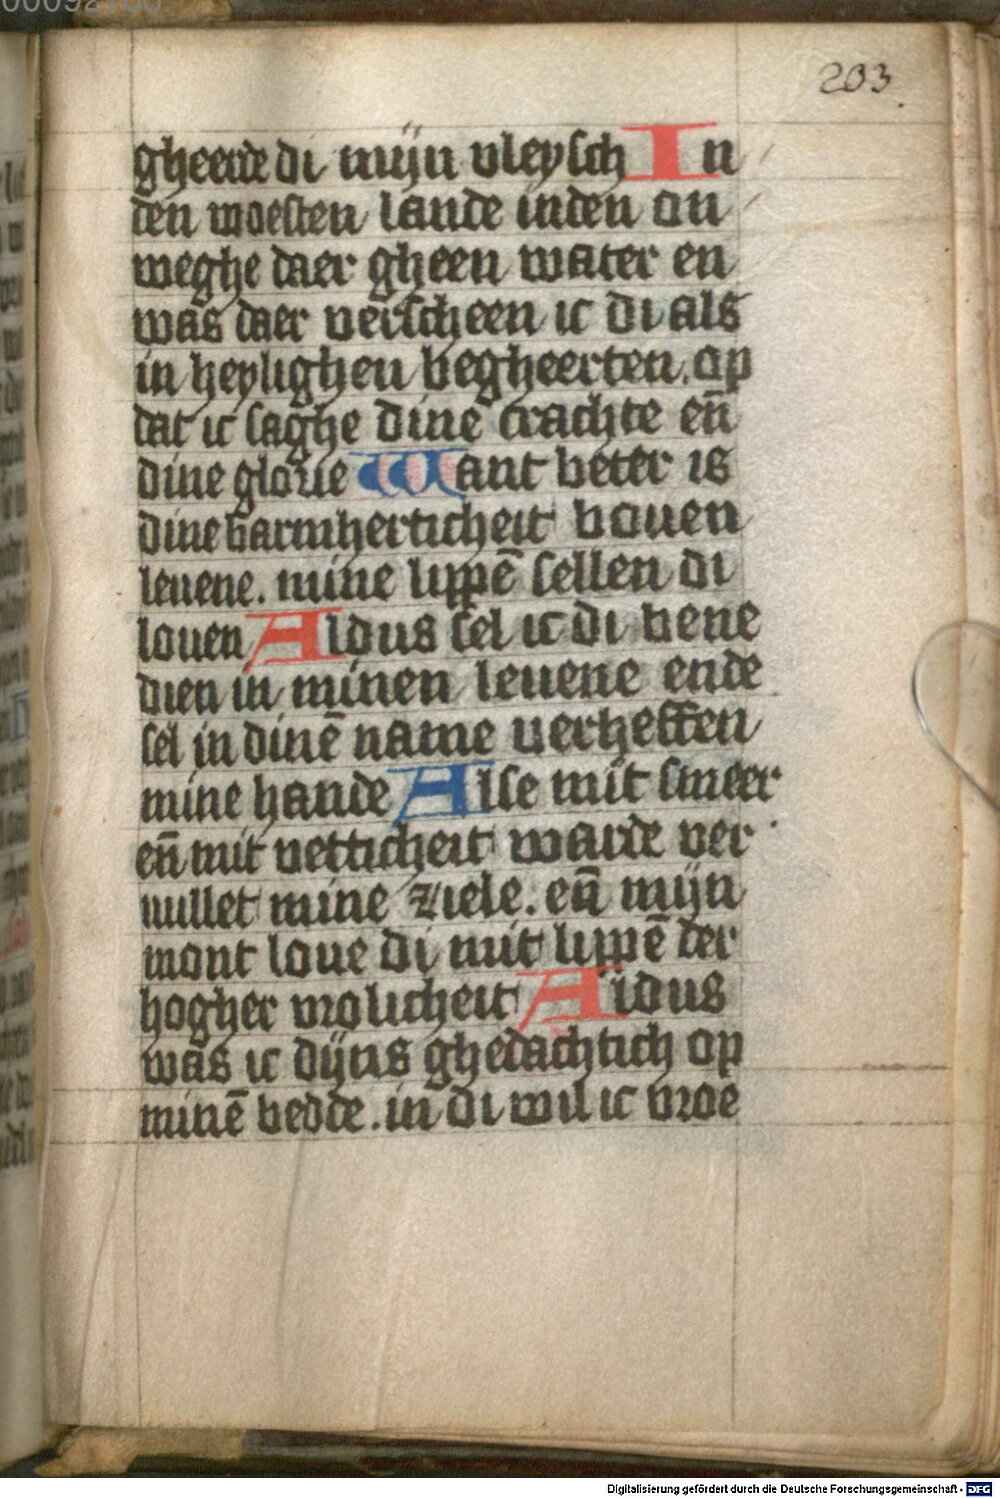 00092765
203.
gheerde di mijn vleysch In
den woesten lande inden on
weghe daer gheen water en
was daer verscheen ic di als
in heylighen begheerten. op
dat ic saghe dine crachte en̄
dine glorie Want beter is
dine barmherticheit bouen
leuene. mine lippē sellen di
louen Aldus sel ic di bene
dien in minen leuene ende
sel in dinē name verheffen
mine hande Alse mit smeer
en̄ mit vetticheit warde ver
uullet mine ziele. en̄ mijn
mont loue di mit lippē der
hogher vrolicheit Aldus
was ic dijns ghedachtich op
minē bedde. in di wil ic vroe
Digitalisierung gefördert durch die Deutsche Forschungsgemeinschaft - DFG